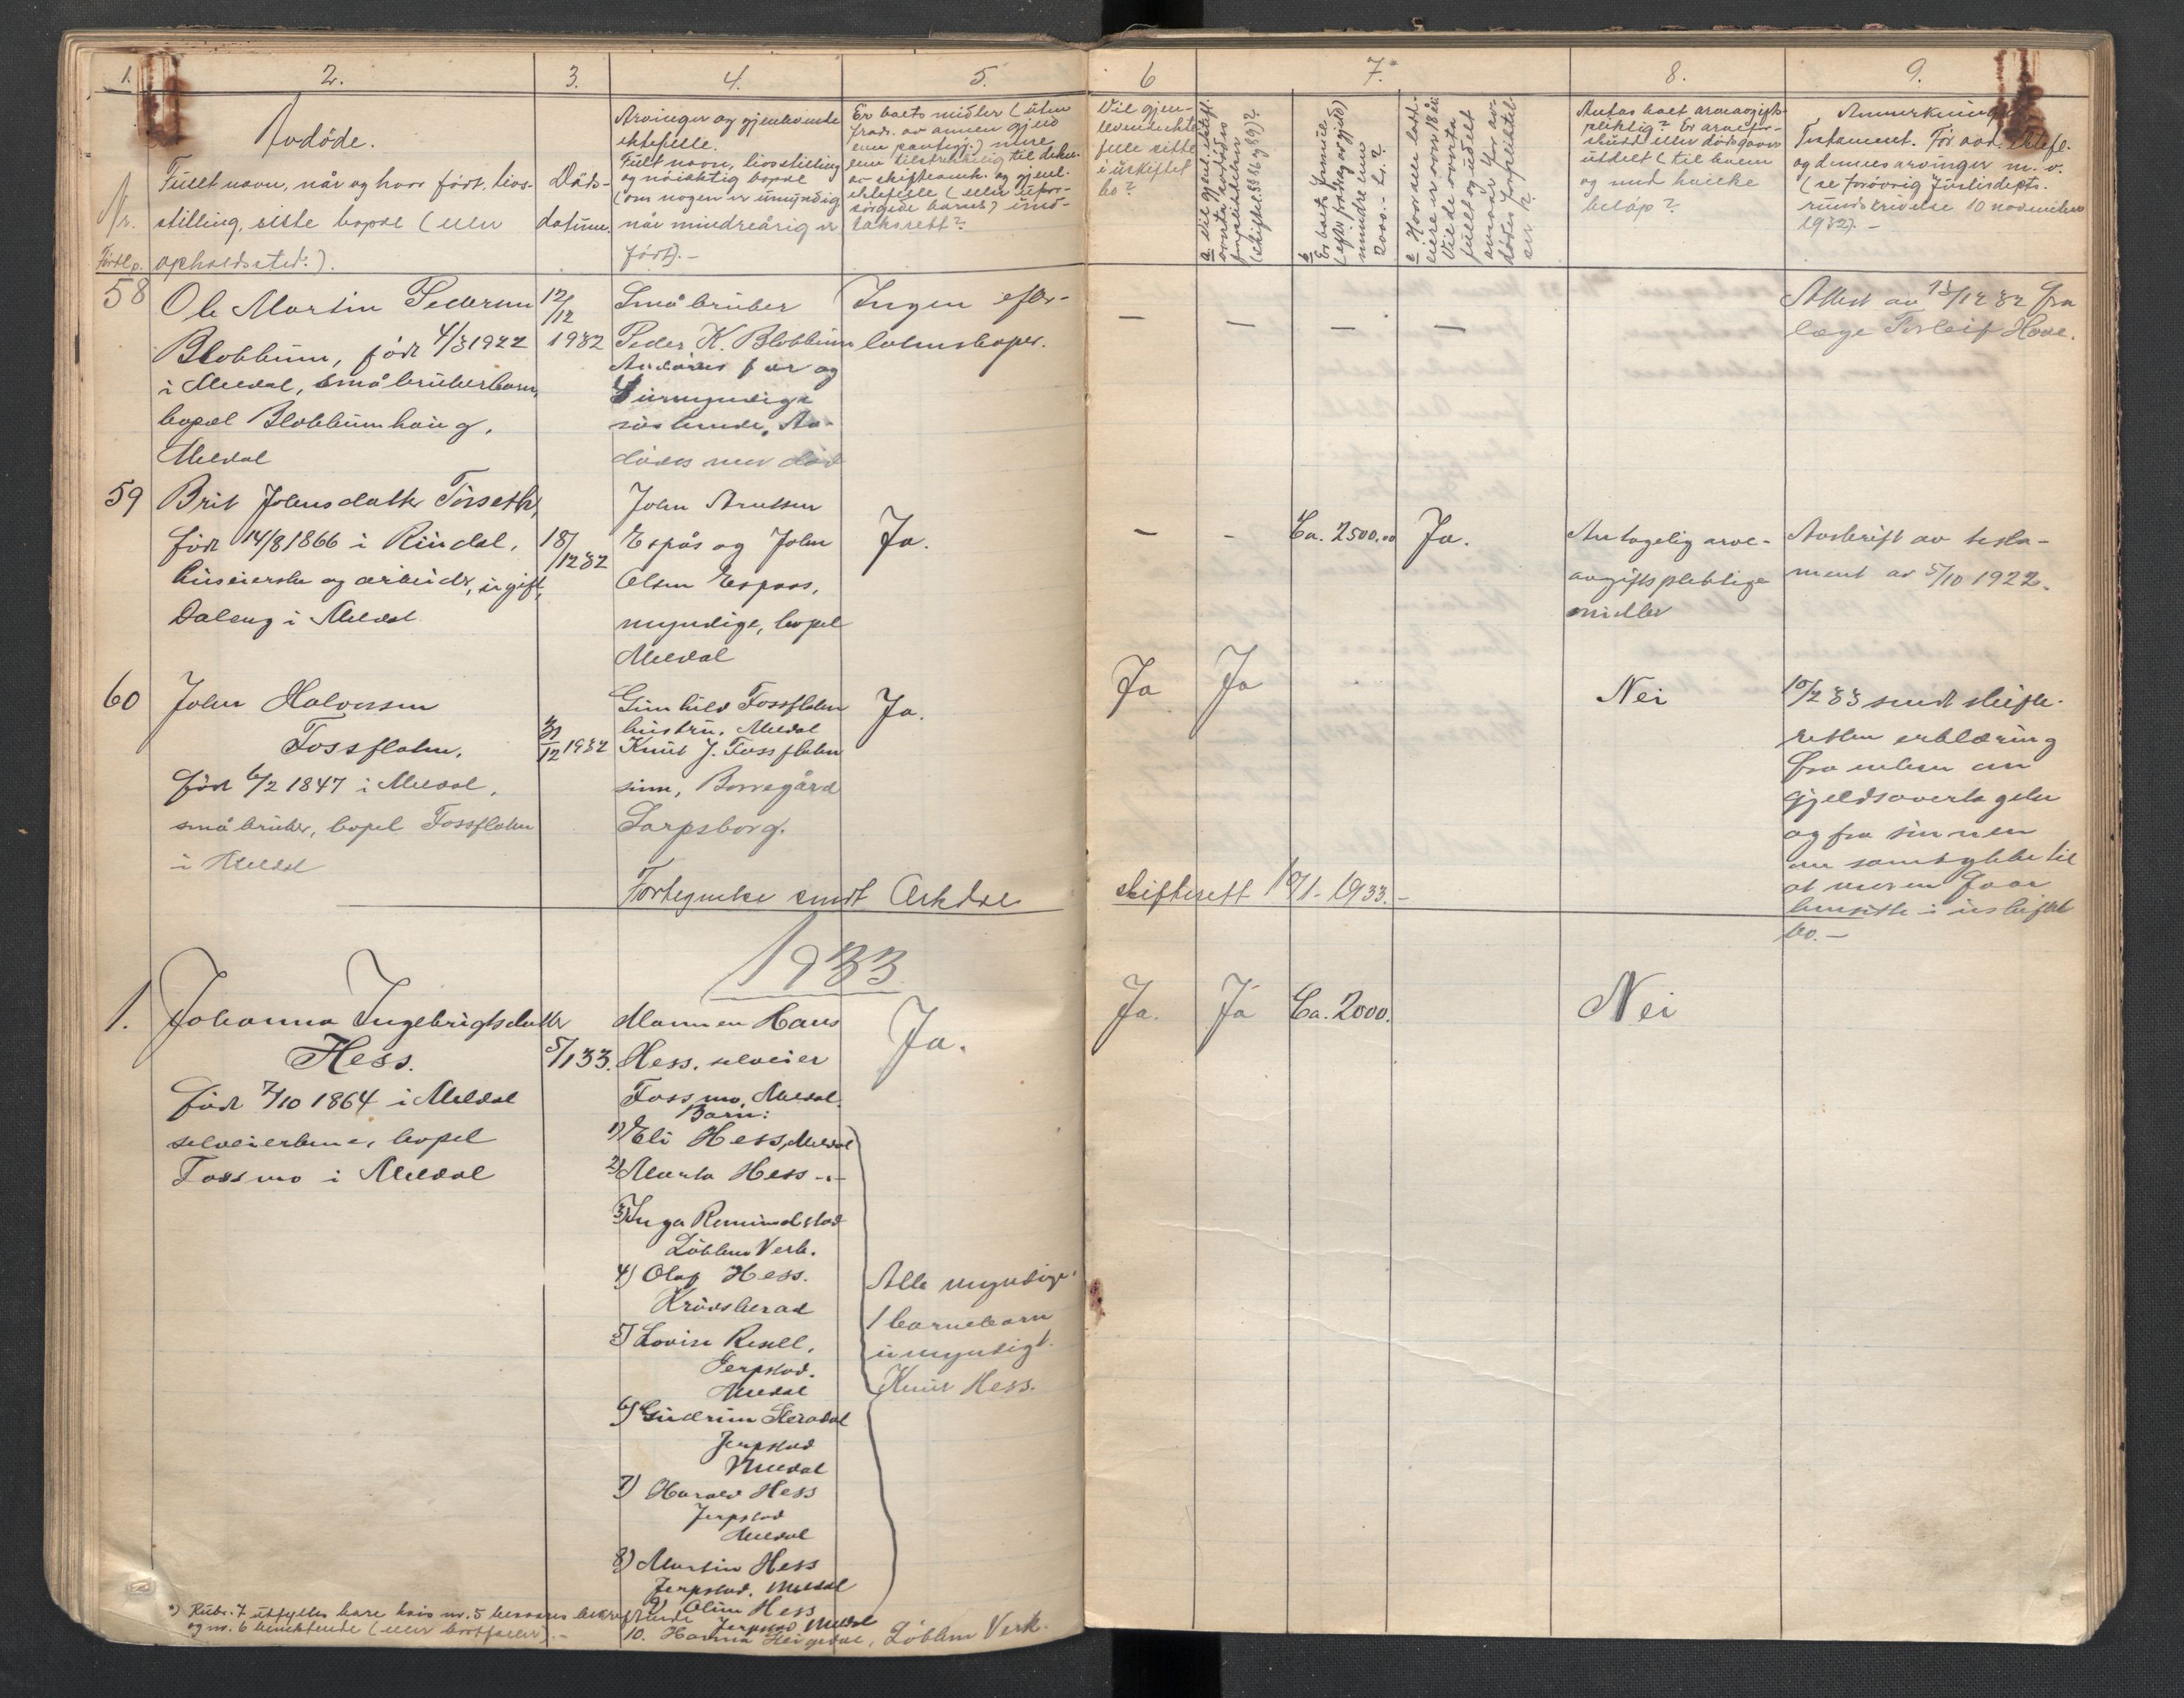 1.
2.
3.
4.
5.
6
7.*
8.
9.
Nr.
Fortlp.
Avdöde.
Fullt navn, når og hvor født, livs-
stilling, siste bopæl (eller
opholdssted.).
Döds-
datum.
Arvinger og gjenlevende
ektefelle.
Fullt navn, livsstilling
og nöiaktig bopæl
(om nogen er umyndig
når mindreårig er
født).-
Er boets midler (uten
fradr. av annen gjeld
enn pantegj.) mere
enn tilstrekkelig til dekn.
av skifteomk. og gjenl.
ektefelle (eller ufor-
sörgede barns) und-
taksrett?
Vil gjen-
levende ekte
felle sitte
i uskiftet
bo?
a. Vil gjenl. ektefl.
overta avdödes
forpliktelser
(skiftel. §§ 66 og 89)?
b
Er boets formue
(efter fradrag av gjeld)
mindre enn
2000.- kr.?
c. Hvor der lodd-
eiere er over 18 år:
Vil de overta
fullt og udelt
ansvar for av-
dödes forpliktel-
ser?
Antas boet arveavgifts-
pliktig? Er arvefor-
skudd eller dödsgaver
utdelt (til hvem
og med hvilke
beløp?
Anmerkninger
Testament. För avd. ektefl.
og dennes arvinger m. v.
(se forövrig Justisdepts.
rundskrivelse 10 november
1932).-
58
Ole Martin Pedersen
Blokkum, født 4/3 1922
i Meldal, småbrukerbarn,
bopæl Blokkumhaug,
Meldal
12/12
1932
Småbruker
Peder K. Blokkum
Avdødes far og
umyndige
søskende. Av-
dødes mor død
Ingen efter-
latenskaper.
—
—
—
—
Attest av 13/12 32 fra
læge Torleif Hove.
59
Brit Johnsdatter Torseth,
født 14/8 1866 i Rindal,
huseierske og arbeider, ugift,
Daleng i Meldal
18/12 32
John Arntsen
Espås og John
Olsen Espaas,
myndige, bopæl
Meldal
Ja.
—
-
Ca. 2500.00
Ja.
Antagelig arve-
avgiftspliktige
midler
Avskrift av testa-
ment av 5/10 1922.
60
John Halvorsen
Fossflaten,
født 6/2 1847 i Meldal,
småbruker, bopæl Fossflaten
i Meldal
31/12 1932
Gunhild Fossflaten
hustru, Meldal
Knut J. Fossflaten
sønn, Borregård
Sarpsborg.
Ja.
Ja
Ja
Nei
10/2 33 sendt skifte-
retten erklæring
fra enken om
gjeldsovertagelse
og fra sønnen
om samtykke til
at moren faar
hensitte i uskiftet
bo.-
Fortegnelse sendt Orkdal skifterett 10/1 - 1933.-
1933
1.
Johanna Ingebrigtsdatter
Hess.
født 7/10 1864 i Meldal
selveierkone, bopel
Fossmo i Meldal
5/1 33.
Mannen Hans
Hess, selveier
Fossmo, Meldal.
Barn:
1) Eli Hess, Meldal
2) Marta Hess -"-
3) Inga Rømundstad
Løkken Verk.
4) Olaf Hess.
Krødsherad
5) Lovise Resell,
Jerpstad.
Meldal
6) Gudrun
Jerpstad
Meldal
7) Harald Hess
Jerpstad
Meldal
8) Martin Hess
Jerpstad. Meldal
9) Oline Hess
Jerpstad Meldal
10. Hanna , Løkken Verk.
Ja.
Alle myndige.
1 barnebarn
umyndigt.
Knut Hess.
Ja.
Ja
Ca. 2000.
Nei
*) Rubr. 7 utfylles bare hvis nr. 5 besvares bekreftende
og nr. 6 benektende (eller bortfaller).-